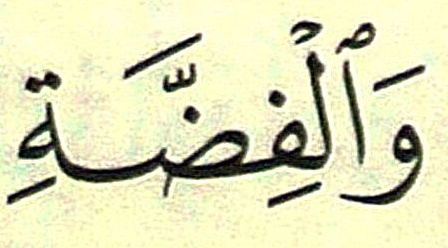 وَٱلْفِضَّةِ